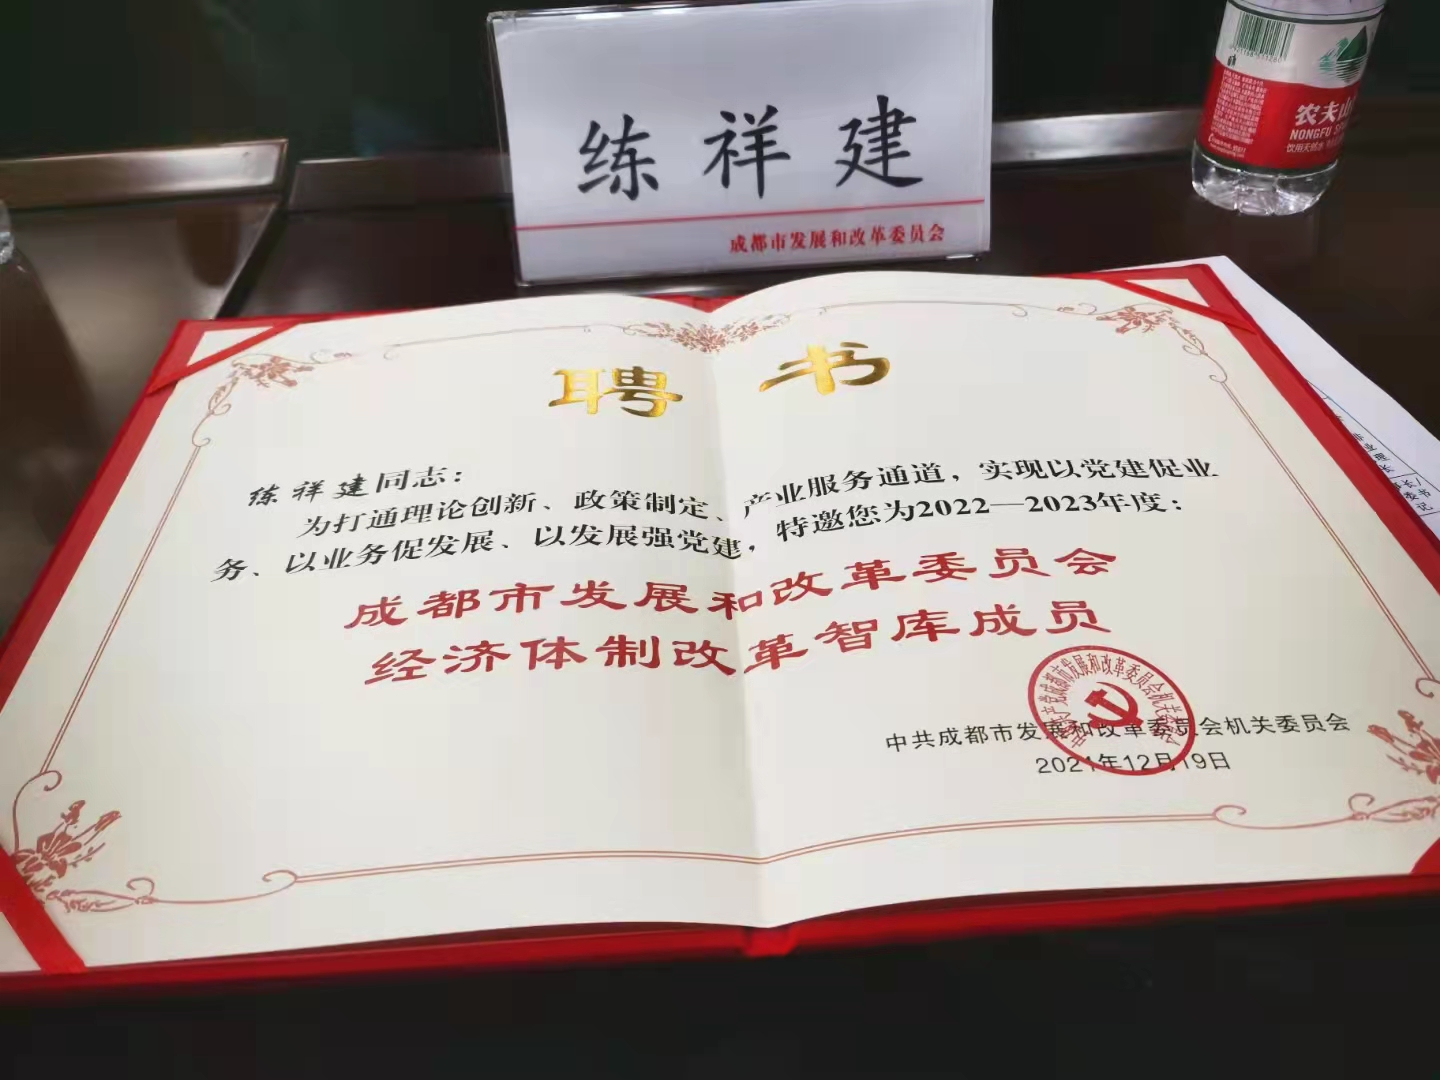 练祥建
成都市发展和改革委员会
农夫山
NONGFU SP
饮用天然水
聘书
练祥建同志：
为打通理论创新、政策制定、产业服务通道，实现以党建促业
务、以业务促发展、以发展强党建，特邀您为2022—2023年度：
成都市发展和改革委员会
经济体制改革智库成员
中共成都市发展和改革委员会机关委员会
2021年12月19日